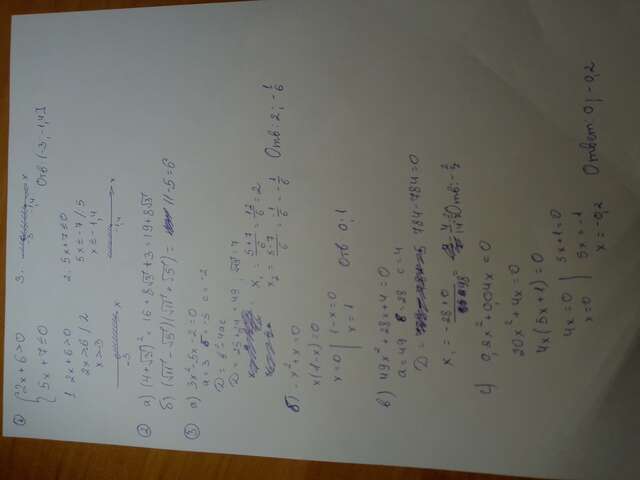 ① { 2x + 6 > 0
5x + 7 ≤ 0
1. 2x + 6 > 0
2x > 6 / 2
x > 3
-3 x
2. 5x + 7 ≤ 0
5x ≤ -7 / 5
x ≤ -1,4
-1,4 x
3. -3 -1,4 x
Отв (-3; -1,4]
② а) (4+√3)² = 16 + 8√3 + 3 = 19 + 8√3
б) (√11 - √5)(√11 + √5) = 11 - 5 = 6
③ а) 3x² - 5x - 2 = 0
a = 3 в = -5 c = -2
D = в² - 4ac
D = 25 + 24 = 49, √49 = 7
x₁ = 5+7/6 = 12/6 = 2
x₂ = 5-7/6 = -2/6 = -1/6
Отв: 2; -1/6
б) -x² + x = 0
x(1-x) = 0
x = 0 | 1-x = 0
x = 1
Отв 0; 1
в) 49x² + 28x + 4 = 0
a = 49 в = 28 c = 4
D = 784 - 784 = 0
x₁ = -28 + 0
Отв: -
г) 0,2x² + 0,04x = 0
20x² + 4x = 0
4x(5x + 1) = 0
4x = 0 | 5x + 1 = 0
x = 0 | 5x = -1
x = -0,2
Ответ: 0; -0,2